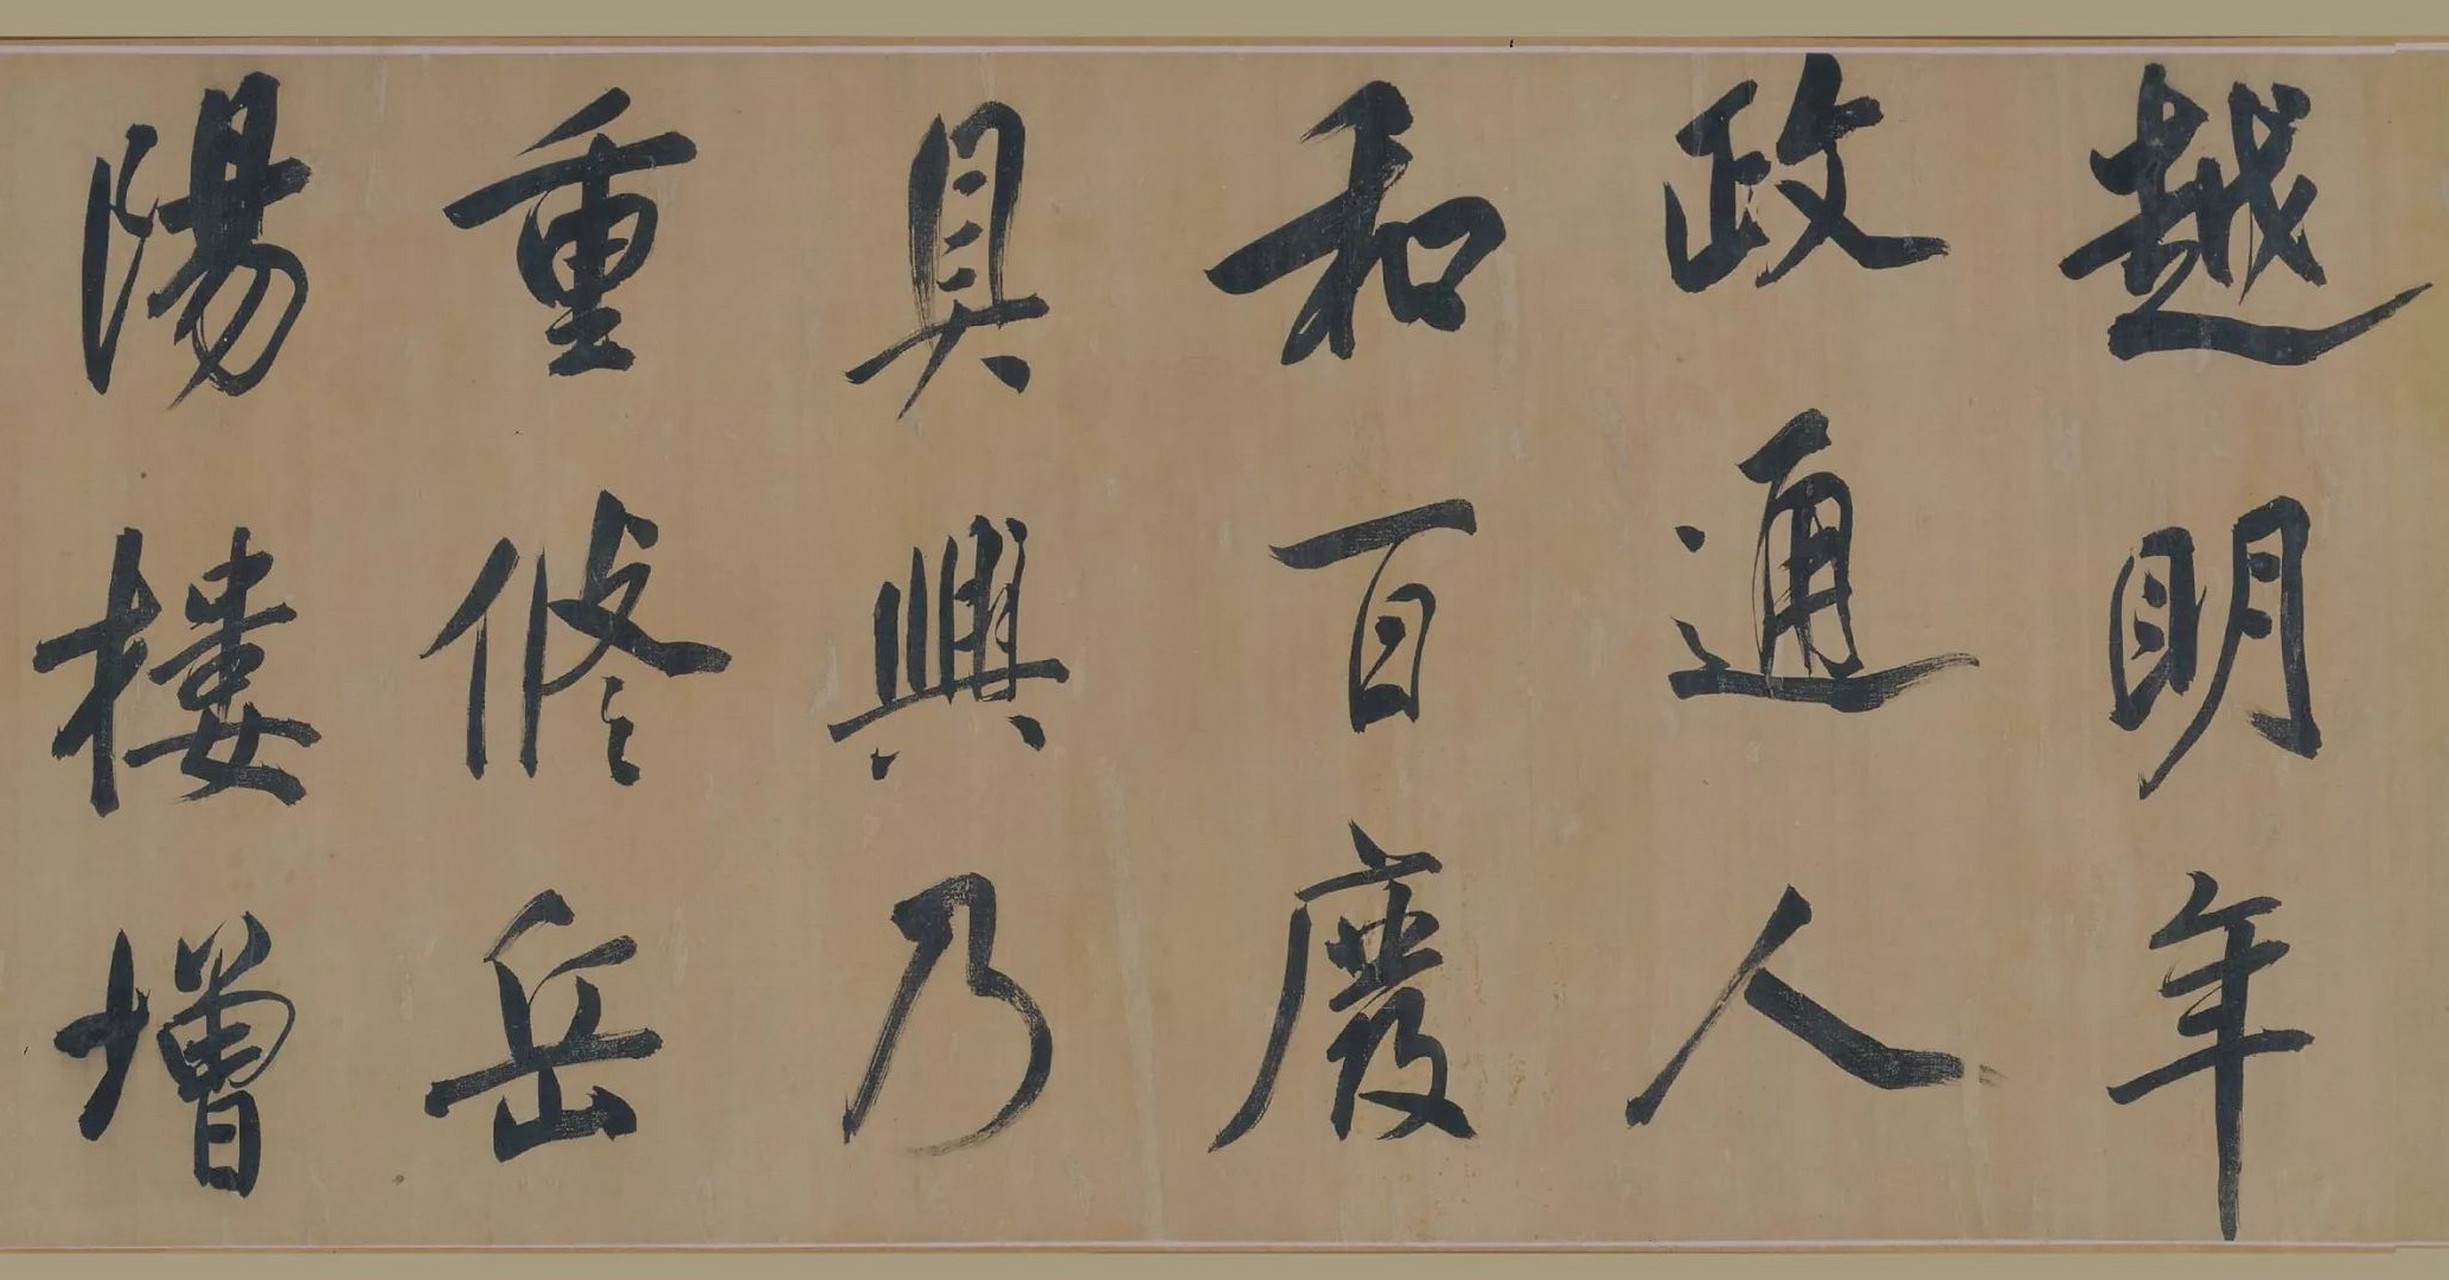 越明年
政通人
和百廢
具興乃
重修岳
陽樓增